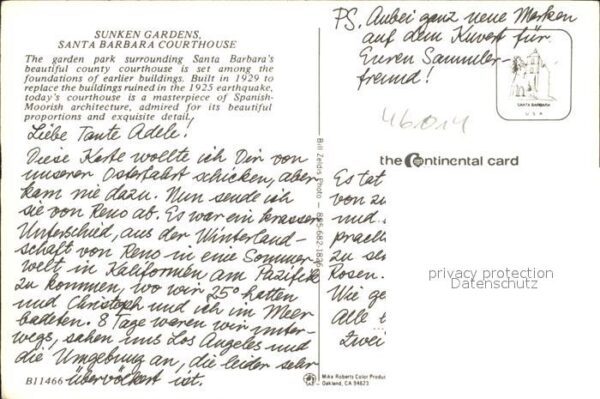 SUNKEN GARDENS,
SANTA BARBARA COURTHOUSE
The garden park surrounding Santa Barbara's
beautiful county courthouse is set among the
foundations of earlier buildings. Built in 1929 to
replace the buildings ruined in the 1925 earthquake,
today's courthouse is a masterpiece of Spanish-
Moorish architecture, admired for its beautiful
proportions and exquisite detail.
Liebe Tante Adele!
Diese Karte wollte ich Dir von
unserer Osterfahrt schicken, aber
kam nie dazu. Nun sende ich
sie von Reno ab. Es war ein krasser
Unterschied, aus der Winterland-
schaft von Reno in eine Sommer-
welt in Kalifornien am Pazifik
zu kommen, wo wir 25° hatten
und Christoph und ich im Meer
badeten. 8 Tage waren wir unter-
wegs, sahen uns Los Angeles und
die Umgebung an, die leider sehr
übervölkert ist.
B11466
Bill Zeldis Photo — 805-682-1836
PS. Anbei ganz neue Marken
auf dem Kuvert für
Euren Sammler-
freund!
SANTA BARBARA
U S A
46014
the Continental card
Es tat
von zu
und
prach
zu se
Rosen.
Wie ge
Alle
Zwei
privacy protection
Datenschutz
Mike Roberts Color Produ
Oakland, CA 94623